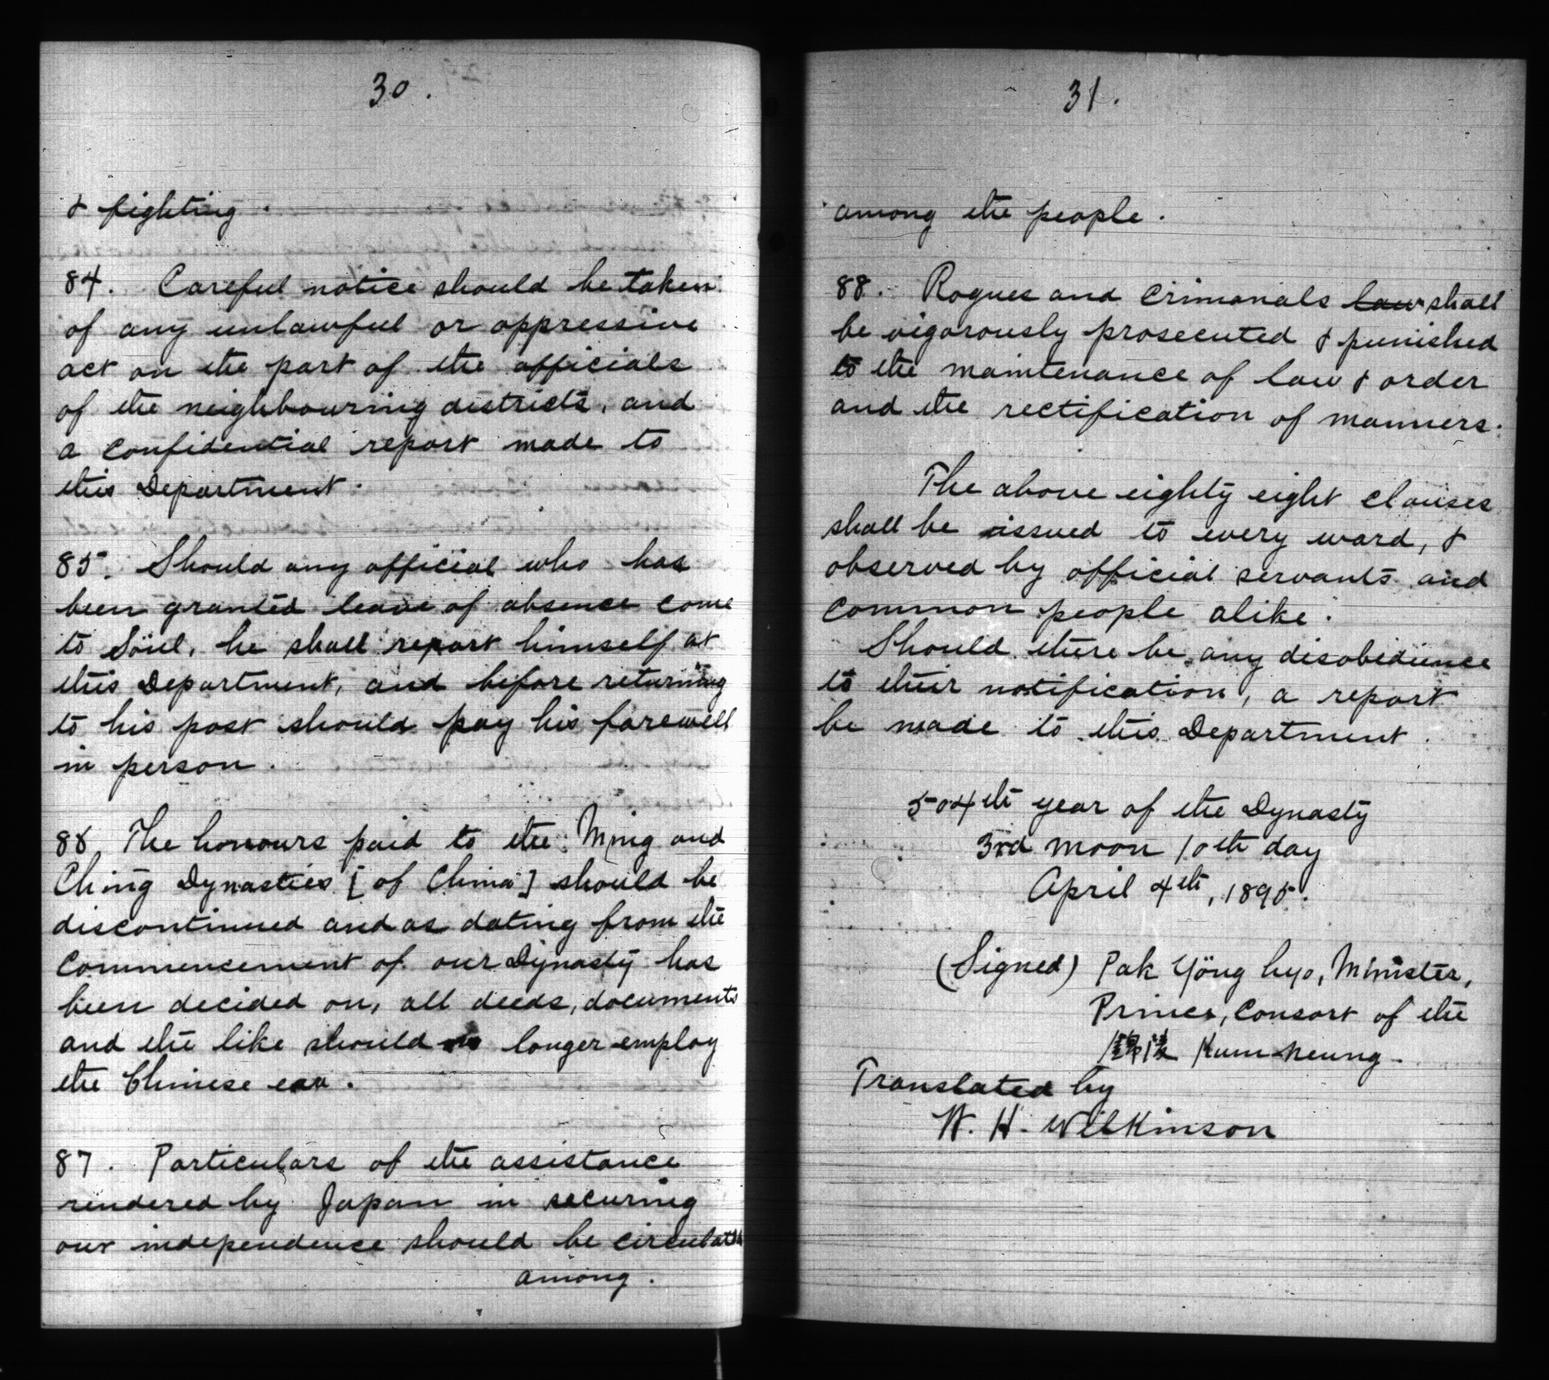 30.
& fighting.
84. Careful notice should be taken
of any unlawful or oppressive
act on the part of the officials
of the neighbouring districts, and
a confidential report made to
this Department.
85. Should any official who has
been granted leave of absence come
to Söul, he shall report himself at
this Department, and before returning
to his post should pay his farewell
in person.
86. The honours paid to the Ming and
Ching Dynasties [of China] should be
discontinued and as dating from the
commencement of our Dynasty has
been decided on, all deeds, documents
and the like should no longer employ
the Chinese era.
87. Particulars of the assistance
rendered by Japan in securing
our independence should be circulated
among.
31.
among the people.
88. Rogues and Crimonals law shall
be vigorously prosecuted & punished
to the maintenance of law & order
and the rectification of manners.
The above eighty eight clauses
shall be issued to every ward, &
observed by official servants and
common people alike.
Should there be any disobedience
to their notification, a report
be made to this Department.
504th year of the Dynasty
3rd moon 10th day
April 4th, 1895.
(Signed) Pak Yöng hyo, Minister,
Prince, Consort of the
錦陵 Kum-neung.
Translated by
W. H. Wilkinson